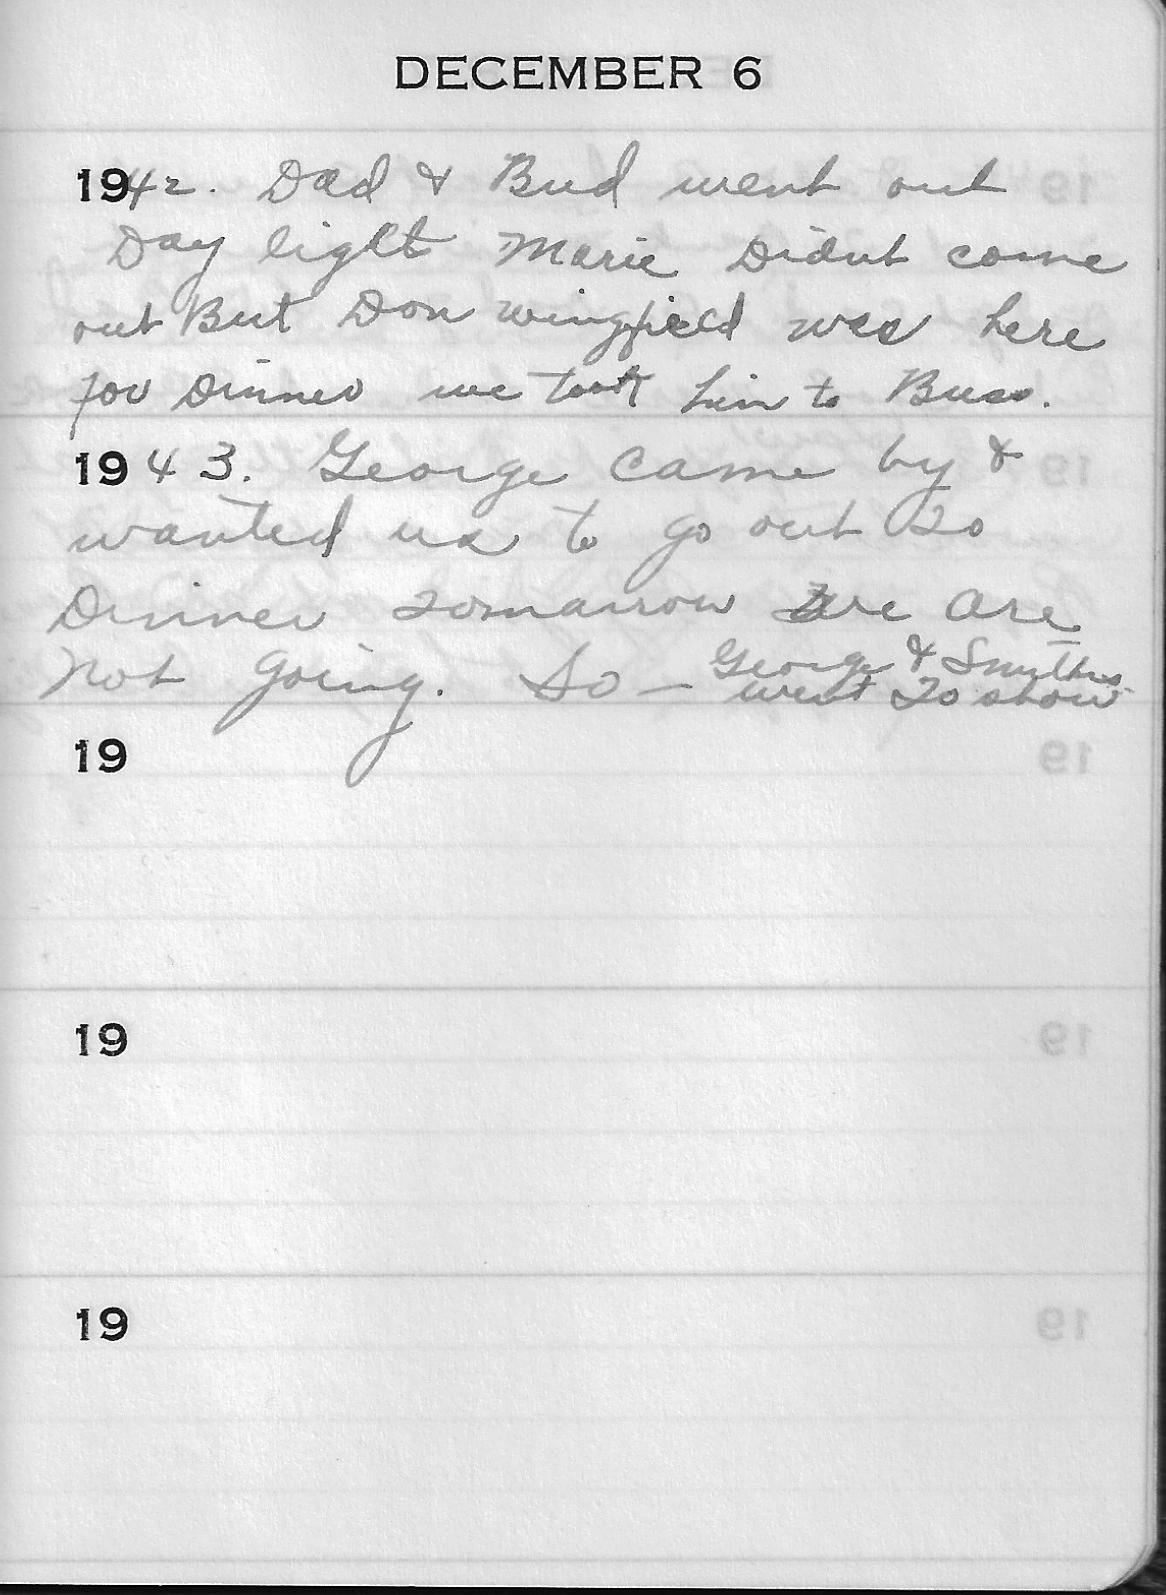 DECEMBER 6
1942. Dad & Bud went out
Day light Marie Didnt come
out But Don wingfield was here
for Dinner we took him to Buss.
1943. George came by &
wanted us to go out To
Dinner Tomarrow we are
not going. So — George & Smyths
went To show
19
19
19